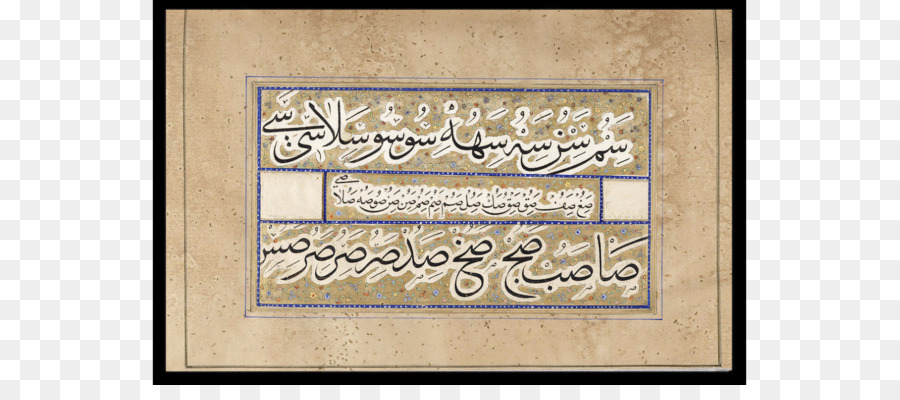 سم سن سه سهه سو سو سلا سی سے
صع صف صق صق صك صل صم صم صم صن صن صو صه صلا صے
صا صب صج صخ صد صر صر صر صس